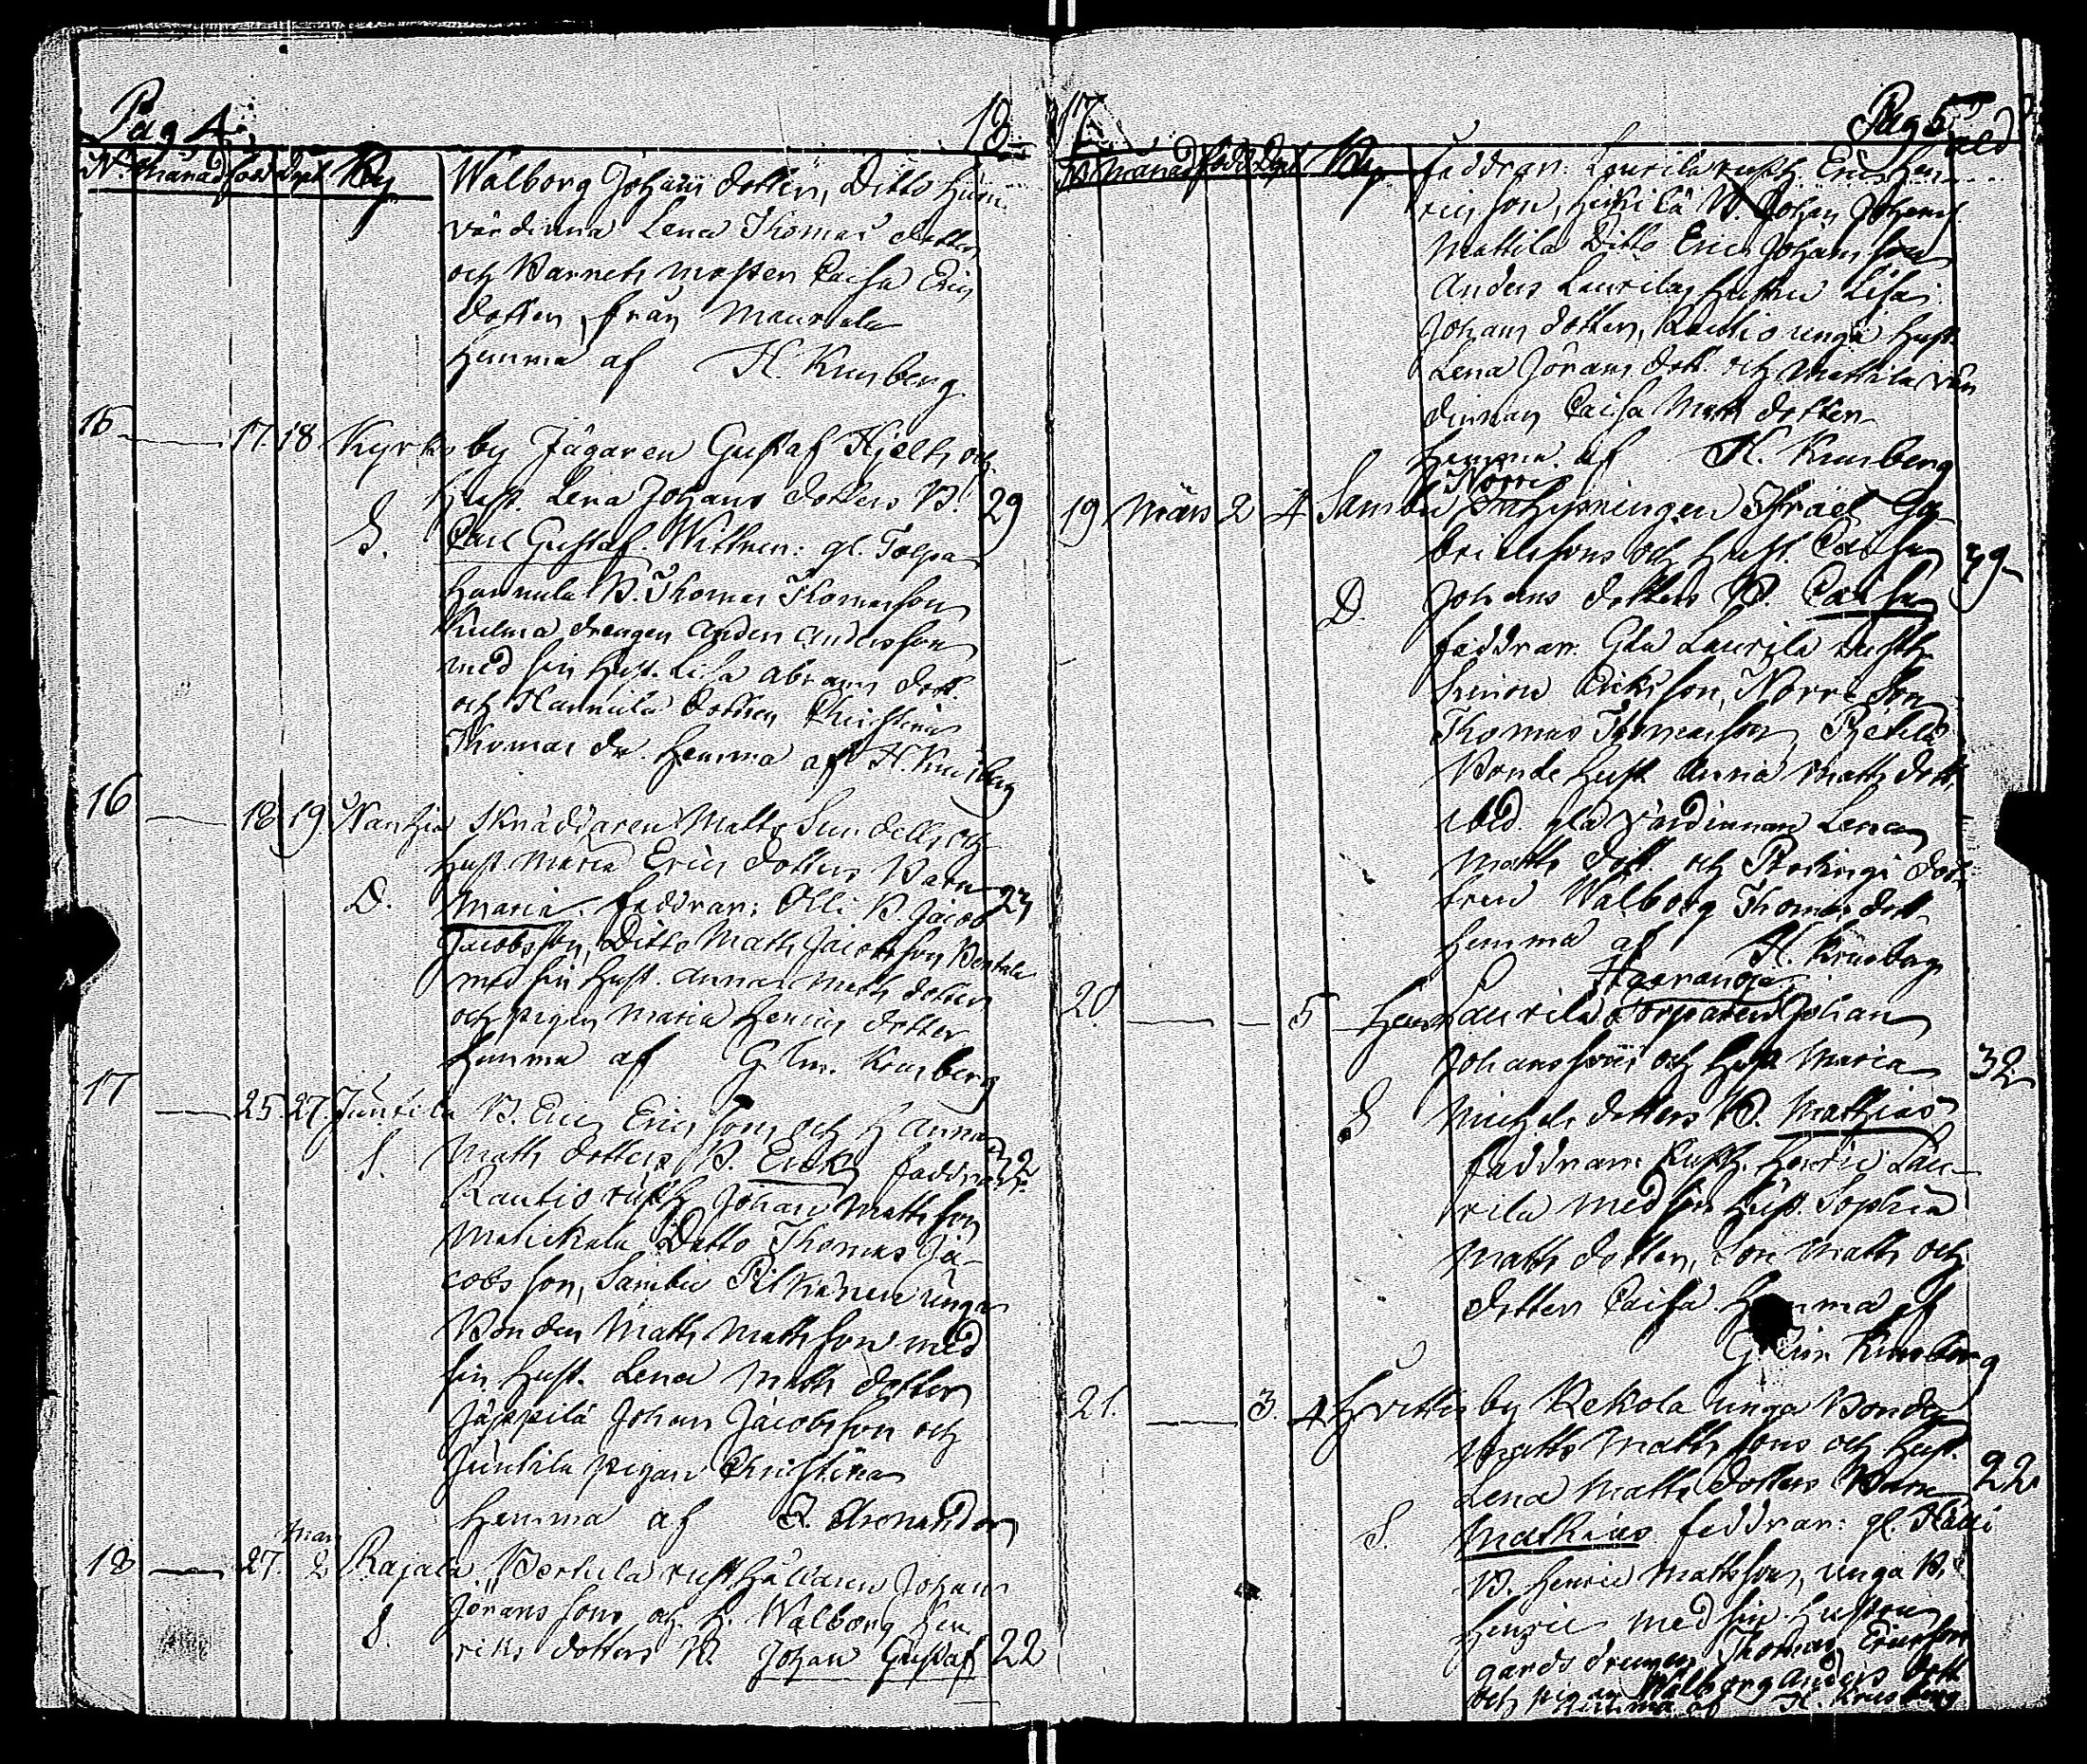 Pag 4. 13
N. Månad född döpt By
Walborg Johans dotter, Ditto
värdinna Lena Thomas dotter
och Barnets moster Caisa Eric
dotter, från
hemma af H. Krusberg
15 — 17 18 Kyrko by Jägaren Gustaf Hjelts och
Hust. Lena Johans dotters B. 29
S. Carl Gustaf. Wittnen: gl. Tolpa
Hannula B. Thomas Thomasson
Kulma drengen Anders Andersson
med sin Hust. Lisa Abrams dott.
och Hannula dottren Christina
Thomas dr. hemma af H. Krusberg
16 — 18 19 Skräddaren Matts Sundells och
Hust Maria Erics dotters Barn 23
D. Maria. faddrar: Olli B. Jacob
Jacobsson, Ditto Matts Jacobsson
med sin Hust. Anna Matts dotter
och pigan Maria Henrics dotter
hemma af Krusberg
17 — 25 27 Juntila B. Eric Ericssons och H Anna
S. Matts dotters B. Erik faddrar: 32
Rautio rusth Johan Mattsson
Ditto Thomas Ja-
cobsson, Sambu Pilkänen unga
Bonden Matts Mattsson med
sin Hust. Lena Matts dotter
Jäppilä Johan Jacobsson och
Juntila pigan Christina
hemma af
Mars
18 — 27. 2 Rajala Bertula rusthållaren Johan
Jörans sons och H. Walborg Hen
S. riks dotters B. Johan Gustaf 22
17 Pag 5
N Månad född Döpt By ald
faddrar: Laurila rusth. Eric Hen-
ricsson, Heikilä B. Johan Johans
Mattila Ditto Eric Johansson
Anders Laurilas hustru Lisa
Johans dotter, Rautio unga Hust.
Lena Jörans dott. och Mattila vär
dinnan Caisa Matts dotter
hemma af H. Krusberg
Norri
19 Mars 2 4 Sambu Inhysningen Israel Ga-
brielssons och Hust. Caisa 39
D. Johans dotters B. Caisa
faddrar: Gla Laurila rusth
Simon Ericksson, Norri Son
Thomas Thomasson,
Bonde Hust. Anna Matts dott.
ibid. gla värdinnan Lena
Matts dott. och dot-
tren Walborg Thomas dott
hemma af H. Krusberg
Harranoja
20 — — 5 Laurila Torparen Johan
Johanssons och Hust Maria 32
S Michels dotters B. Mathias
faddrar: Rusth. Henric Lau-
rila med sin Hust. Sophia
Matts dotter, Son Matts och
dotter Caisa. Hemma af
Krusberg
21. — 3. 4 Hvittis by Rekola unga Bonden
Matts Mattssons och Hust.
Lena Matts dotters Barn 22
S. Mathias faddrar: gl.
B. Henric Mattsson, unga B.
Henric med sin hustru
gårds drengen Thomas Ericsson
och pigan Walborg Anders dott
hemma af H. Krusberg